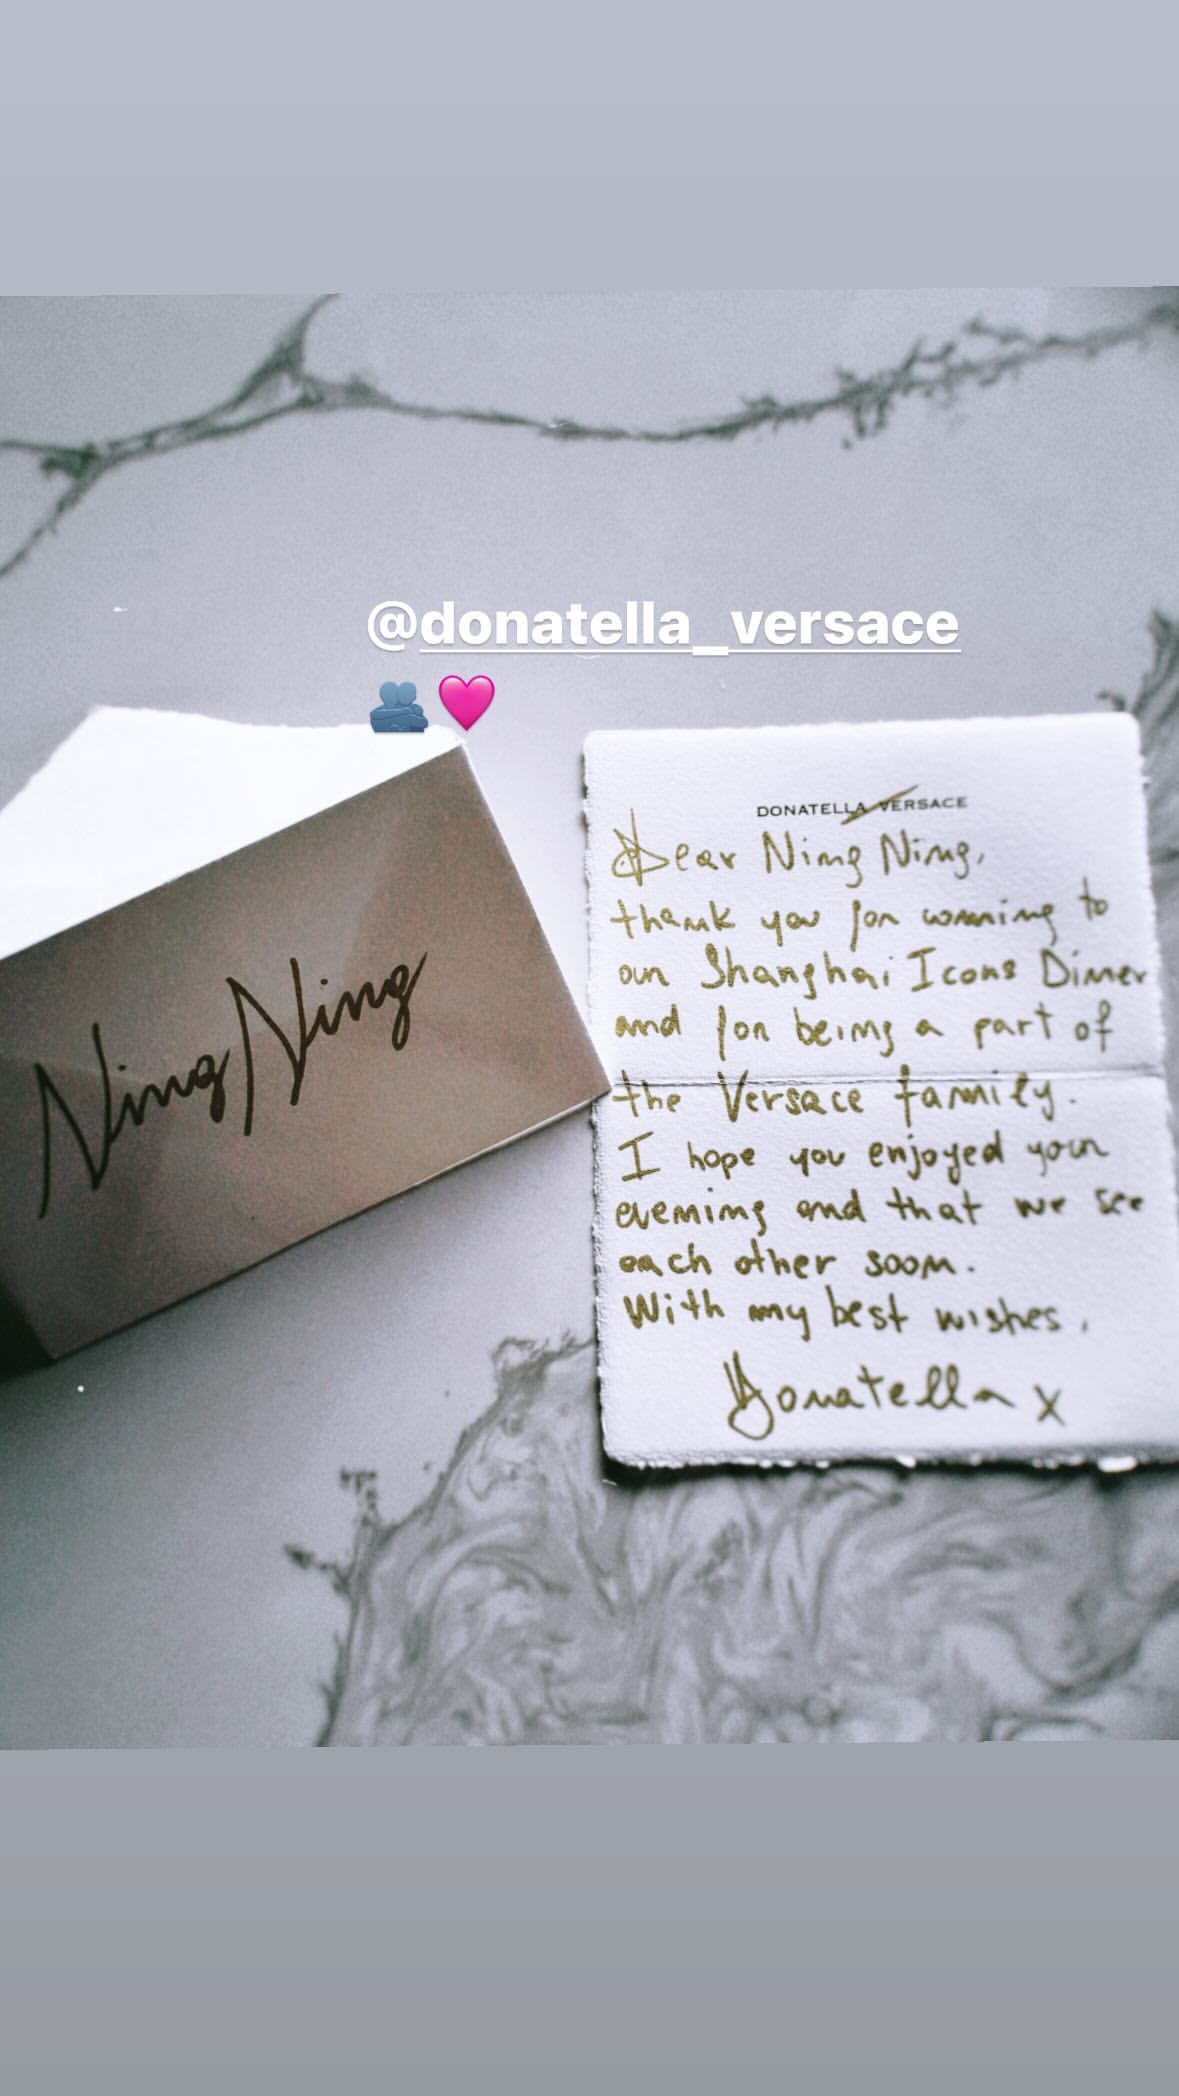 @donatella_versace
🫂🩷
Ning Ning
DONATELLA VERSACE
Dear Ning Ning,
thank you for comming to
our Shanghai Icons Dinner
and for being a part of
the Versace family.
I hope you enjoyed your
evening and that we see
each other soon.
With my best wishes,
Donatella x